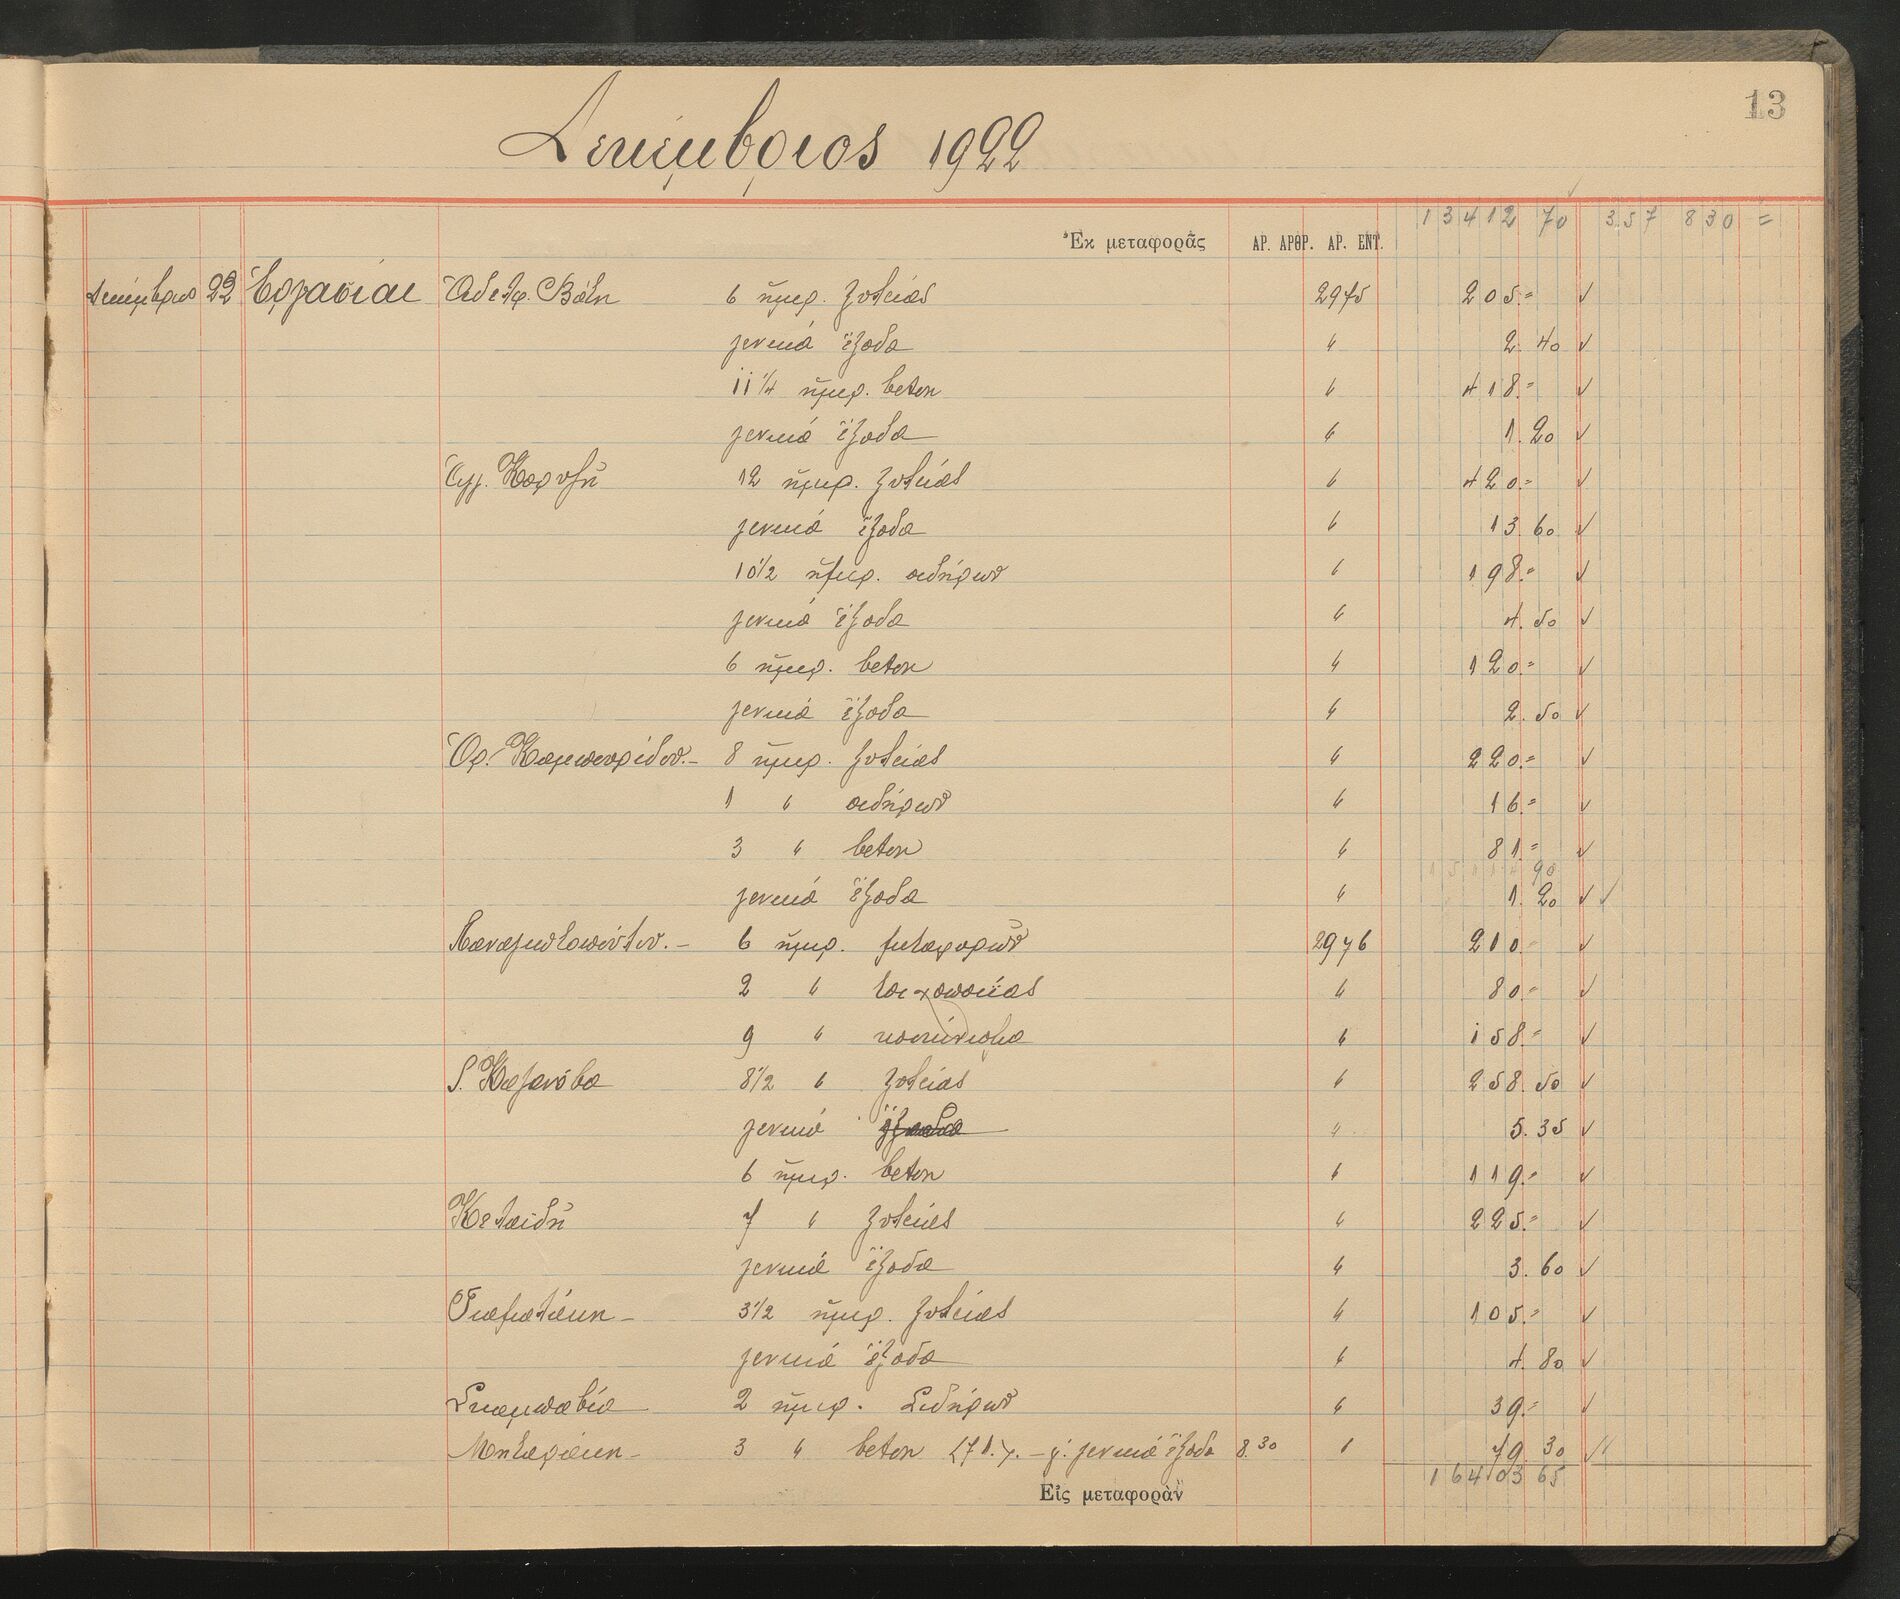 13
Δεκέμβριος 1922
13412 70 357 830 =
Ἐκ μεταφορᾶς ΑΡ. ΑΡΘΡ. ΑΡ. ΕΝΤ.
Δεκέμβριος 22 Ἐργασίαι Ἀδελφ. Βάλη 6 ἡμερ. ξυλείας 2975 205.=
γενικά ἔξοδα " 2.40
11 1/4 ἡμερ. beton " 418.=
γενικά ἔξοδα " 1.20
12 ἡμερ. ξυλείας " 420.=
γενικά ἔξοδα " 13.60
10 1/2 ἡμερ. σιδήρων " 198.=
γενικά ἔξοδα " 4.50
6 ἡμερ. beton " 120.=
γενικά ἔξοδα " 2.50
Ὀρ. Καμπουρίδου.- 8 ἡμερ. ξυλείας " 220.=
1 " σιδήρων " 16.=
3 " beton " 81.=
15114 90
γενικά ἔξοδα " 1.20
Παναγιωτοπούλου.- 6 ἡμερ. μεταφορῶν 2976 210.-
2 " τοιχοποιίας " 80.-
9 " κοσκίνισμα " 158.=
S. Καζανόβα 8 1/2 " ξυλείας " 258.50
γενικά ἔξοδα " 5.35
6 ἡμερ. beton " 119.-
Κελαϊδῆ 7 " ξυλείας " 225.=
γενικά ἔξοδα " 3.60
Γιαματάκη - 3 1/2 ἡμερ. ξυλείας " 105.=
γενικά ἔξοδα " 4.80
Σκαμπαβία 2 ἡμερ. Σιδήρων " 39.=
Μηταράκη - 3 " beton γενικά ἔξοδα 8.30 " 79.30
16403 65
Εἰς μεταφορὰν